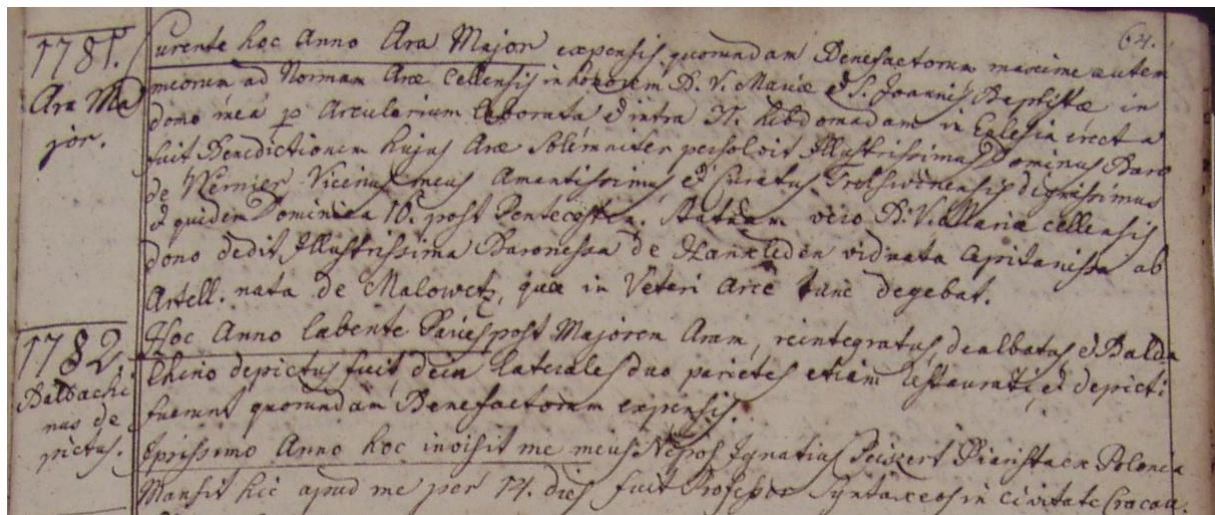 64.
1781.
Ara Ma
jor.
Currente hoc Anno Ara Major expensis quorundam Benefactorum maxime autem
meorum ad Normam Aræ Cellensis in honorem B. V. Mariæ & S. Joannis Baptistæ in
domo mea per Arcularium elaborata & intra hebdomadam in Eclesia erecta
fuit Benedictionem hujus Aræ Solemniter persolvit Illustrissimus Dominus Baro
de Wernier Vicinus meus Amantissimus et Curatus dignissimus
& quidem Dominica 10. post Pentecosten. Statuam vero B. V. Mariæ Cellensis
dono dedit Illustrissima Baronessa de Hankleden viduata Capitanissa ab
Artell. nata de Malowetz, quæ in Veteri Arce tunc degebat.
1782.
Baldachi
nus de
pictus.
Hoc Anno labente Paries post Majorem Aram, reintegratus, dealbatus & Balda
chino depictus fuit, dein laterales duo parietes etiam restaurati, et depicti
fuerunt quorundam Benefactorum expensis.
Ipsissimo Anno hoc invisit me meus Nepos Ignatius Peiszert Piarista ex Polonia
Mansit hic apud me per 14. dies fuit Professor Syntaxeos in civitate Cracov.